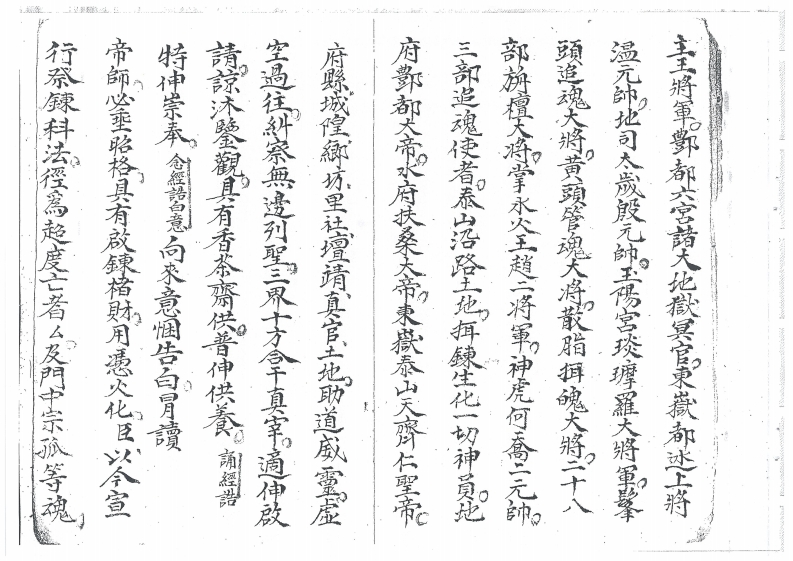 主王將軍。酆都六宮諸大地獄冥官。東嶽都逑上將
溫元帥。地司太歲殷元帥。玉陽宮琰摩羅大將軍。髼
頭追魂大將。黃頭管魂大將。散脂拘魄大將。二十八
部旃檀大將。掌水火王趙二將軍。神虎何喬二元帥。
三部追魂使者。泰山沿路土地。拘鍊生化一切神員。地
府酆都大帝。水府扶桑大帝。東嶽泰山天齊仁聖帝。
府縣城隍。鄉坊里社。壇靖真官。土地助道威靈。虛
空過往。糾察無邊列聖。三界十方合干真宰。適伸啟
請。諒沐鑒觀。具有香茶齋供。普伸供養。誦經誥
特伸崇奉。念經誥白意向來意悃告白冒讀
帝師。必垂昭格。具有啟鍊楮財。用憑火化。臣以今宣
行祭鍊科法。徑爲超度亡者厶。及門中宗孤等魂。